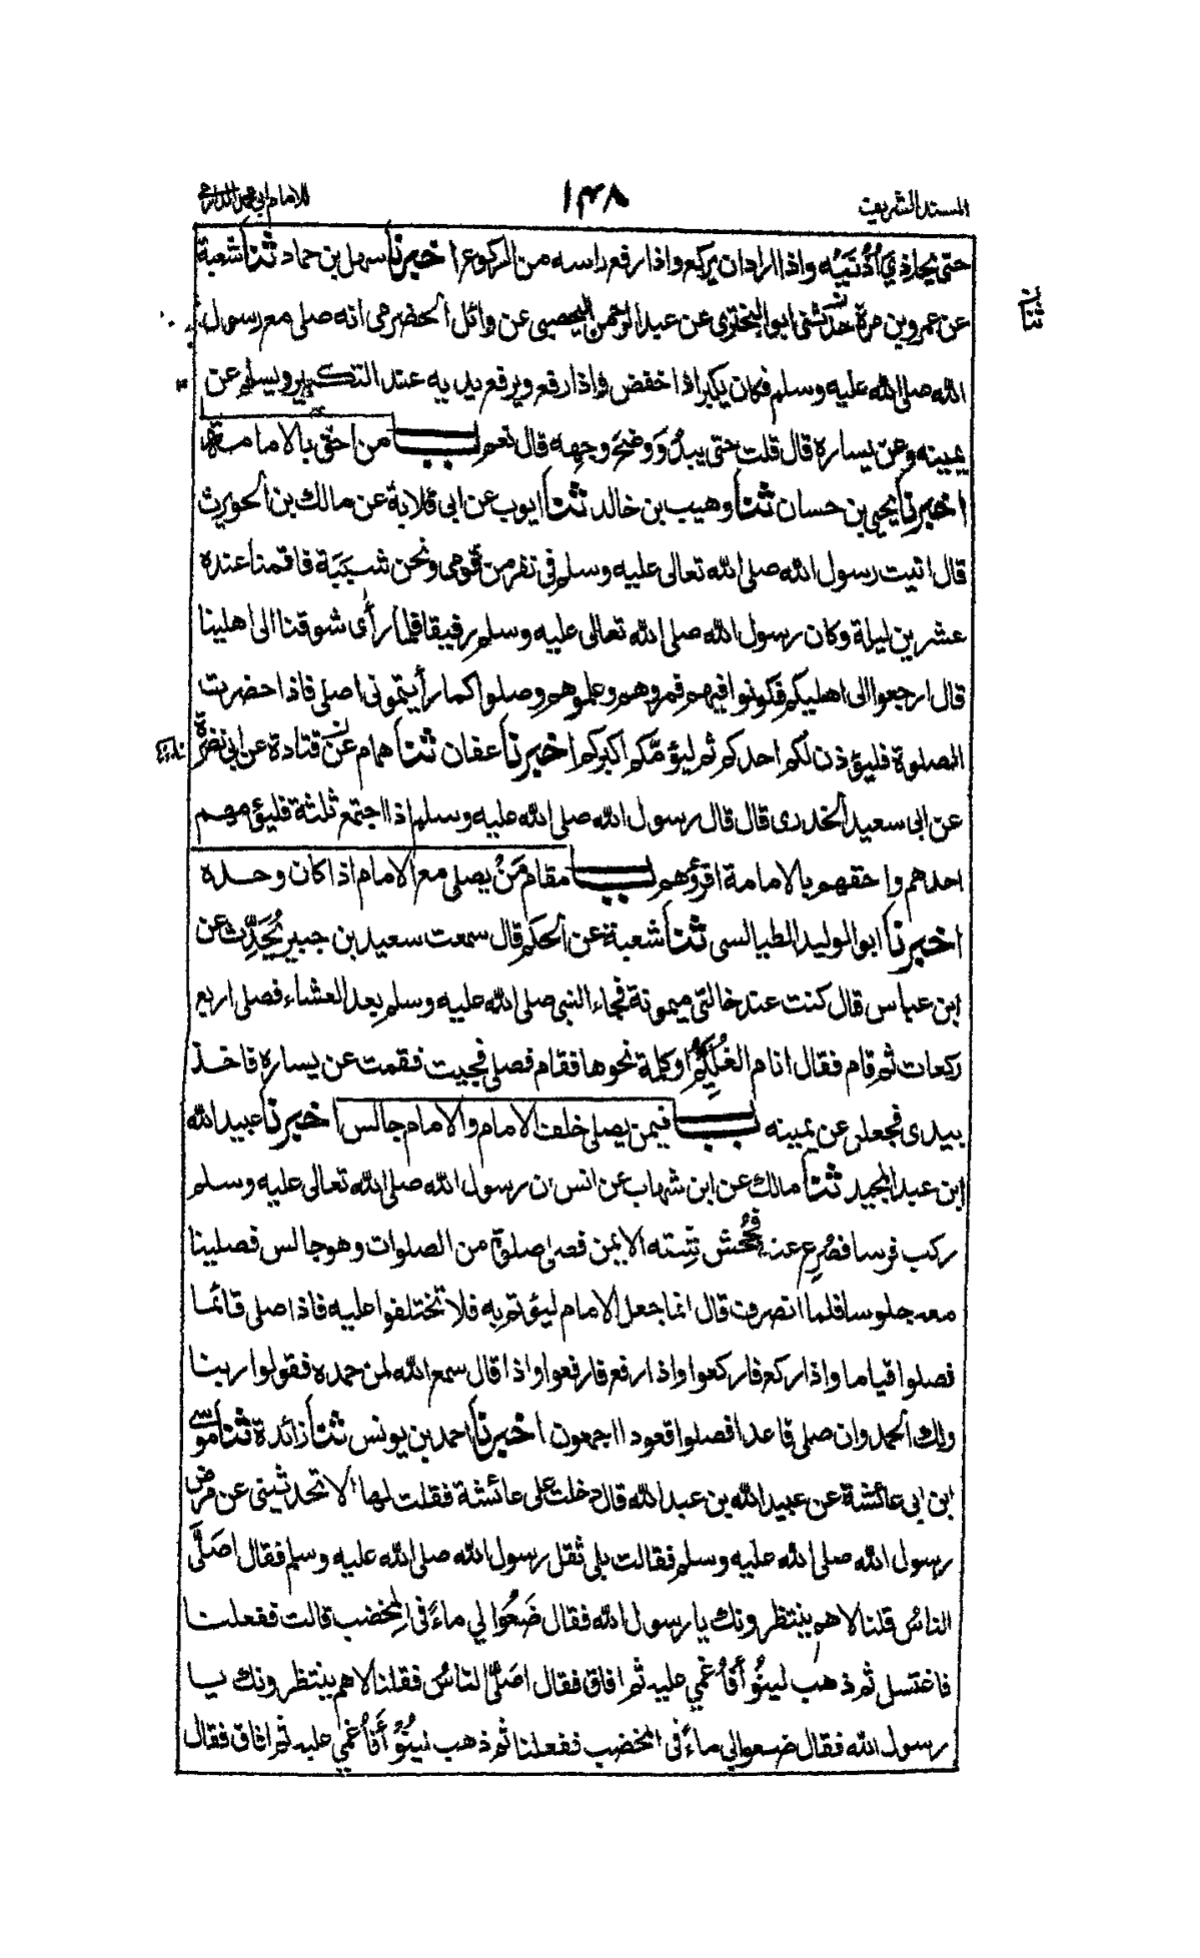 المسند الشريف ١٤٨ للامام ابي محمد الدارمي
حتى يحاذي أُذُنَيْه واذا اراد ان يركع واذا رفع راسه من الركوع اخبرنا سهل بن حماد ثنا شعبة
عن عمرو بن مرة حدثنى ابو البختري عن عبد الرحمن اليحصبى عن وائل الحضرمى انه صلى مع رسول
ثنا
الله صلى الله عليه وسلم فكان يكبر اذا خفض واذا رفع ويرفع يديه عند التكبير ويسلم عن
يمينه وعن يساره قال قلت حتى يبدُوَ وضَحُ وجهه قال نعم باب من احق بالامامة
اخبرنا يحيى بن حسان ثنا وهيب بن خالد ثنا ايوب عن ابى قلابة عن مالك بن الحويرث
قال اتيت رسول الله صلى الله تعالى عليه وسلم في نفر من قومى ونحن شَبَبَة فاقمنا عنده
عشرين ليلة وكان رسول الله صلى الله تعالى عليه وسلم رفيقا فلما رأى شوقنا الى اهلينا
قال ارجعوا الى اهليكم فكونوا فيهم فمروهم وعلموهم وصلوا كما رأيتمونى اصلى فاذا حضرت
الصلوة فليؤذن لكم احدكم ثم ليؤمّكم اكبركم اخبرنا عفان ثنا همام عن قتادة عن ابى نضرة
عن ابى سعيد الخدرى قال قال رسول الله صلى الله عليه وسلم اذا اجتمع ثلثة فليؤمهم
احدهم واحقهم بالامامة اقرؤهم باب مقام مَنْ يصلى مع الامام اذا كان وحده
اخبرنا ابو الوليد الطيالسى ثنا شعبة عن الحكم قال سمعت سعيد بن جبير يُحَدِّث عن
ابن عباس قال كنت عند خالتى ميمونة فجاء النبى صلى الله عليه وسلم بعد العشاء فصلى اربع
ركعات ثم قام فقال انام الغُلَيِّمُ او كلمة نحوها فقام فصلى فجيت فقمت عن يساره فاخذ
بيدى فجعلنى عن يمينه باب فيمن يصلى خلف الامام والامام جالس اخبرنا عبيد الله
ابن عبد المجيد ثنا مالك عن ابن شهاب عن انس ن رسول الله صلى الله تعالى عليه وسلم
ركب فرسا فصُرِع عنه فجُحِش شقه الايمن فصلى صلوة من الصلوات وهو جالس فصلينا
معه جلوسا فلما انصرف قال انما جعل الامام ليؤتم به فلا تختلفوا عليه فاذا صلى قائما
فصلوا قياما واذا ركع فاركعوا واذا رفع فارفعوا واذا قال سمع الله لمن حمده فقولوا ربنا
ولك الحمد وان صلى قاعدا فصلوا قعودا اجمعون اخبرنا احمد بن يونس ثنا زائدة ثنا موسى
ابن ابى عائشة عن عبيد الله بن عبد الله قال دخلت على عائشة فقلت لها الا تحدثينى عن مرض
رسول الله صلى الله عليه وسلم فقالت بلى ثقل رسول الله صلى الله عليه وسلم فقال اَصَلَّى
الناس قلنا لا هم ينتظرونك يا رسول الله فقال ضَعُوا لي ماءً فى المِخضب قالت ففعلنا
فاغتسل ثم ذهب لينُوْأَ فاُغمي عليه ثم افاق فقال اصَلَّى الناسُ فقلنا لا هم ينتظرونك يا
رسول الله فقال ضعوا لي ماءً فى المخضب ففعلنا ثم ذهب لينُوْأَ فاُغمي عليه ثم افاق فقال